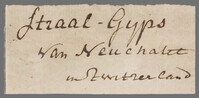 Straal-Gyps
van Neuchatel
in Zwitzerland